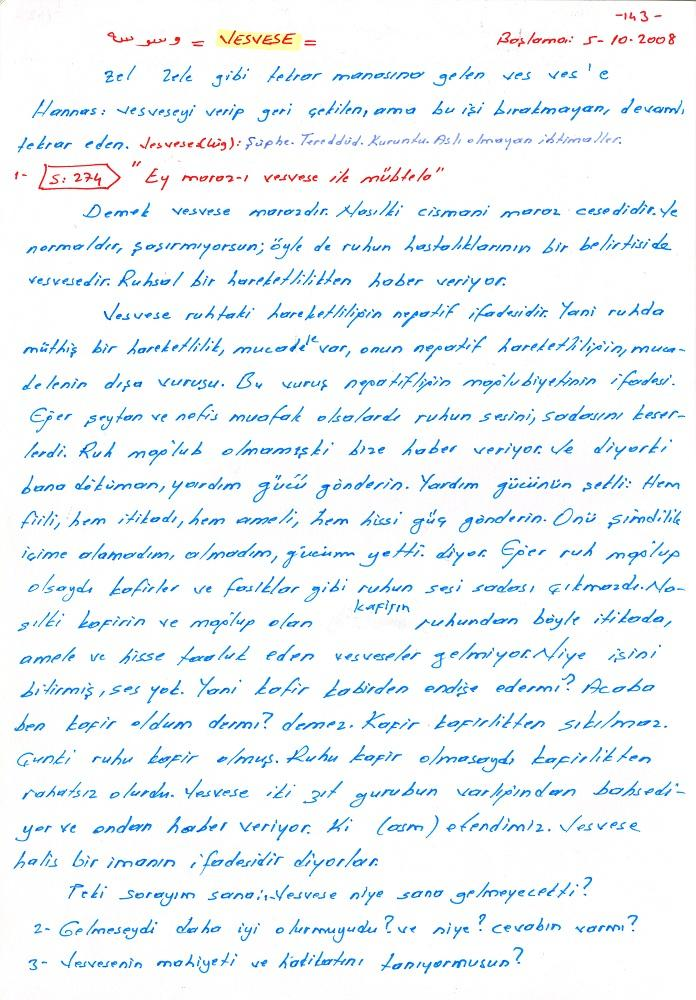 -143-
وسوسة = VESVESE = Başlama: 5-10-2008
Zel Zele gibi tekrar manasına gelen ves ves'e
Hannas: vesveseyi verip geri çekilen, ama bu işi bırakmayan, devamlı
tekrar eden. Vesvese(lüg): Şüphe. Tereddüd. Kuruntu. Aslı olmayan ihtimaller.
1- S: 274 "Ey maraz-ı vesvese ile mübtela"
Demek vesvese marazdır. Nasılki cismani maraz cesedidir. Ve
normaldır, şaşırmıyorsun; öyle de ruhun hastalıklarının bir belirtiside
vesvesedir. Ruhsal bir hareketlilikten haber veriyor.
Vesvese ruhtaki hareketliliğin negatif ifadesidir. Yani ruhda
müthiş bir hareketlilik, mucadele var, onun negatif hareketliliğin, muca-
delenin dışa vuruşu. Bu vuruş negatifliğin mağlubiyetinin ifadesi.
Eğer şeytan ve nefis muafak olsalardı ruhun sesini, sadasını keser-
lerdi. Ruh mağlub olmamışki bize haber veriyor. Ve diyorki
bana döküman, yardım gücü gönderin. Yardım gücünün şekli: Hem
fiili, hem itikadı, hem ameli, hem hissi güç gönderin. Onü şimdilik
içime alamadım, almadım, gücüm yetti. diyor. Eğer ruh mağlup
olsaydı kafirler ve fasıklar gibi ruhun sesi sadası çıkmazdı. Na-
sılki kafirin ve mağlup olan kafirin ruhundan böyle itikada,
amele ve hisse taaluk eden vesveseler gelmiyor. Niye işini
bitirmiş, ses yok. Yani kafir kabirden endişe edermi? Acaba
ben kafir oldum dermi? demez. Kafir kafirlikten sıkılmaz.
Çunki ruhu kafir olmuş. Ruhu kafir olmasaydı kafirlikten
rahatsız olurdu. Vesvese iki zıt gurubun varlığından bahsedi-
yor ve ondan haber veriyor. Ki (asm) efendimiz. Vesvese
halis bir imanın ifadesidir diyorlar.
Peki sorayım sana: 1- Vesvese niye sana gelmeyecekti?
2- Gelmeseydi daha iyi olurmuyudu? ve niye? cevabın varmı?
3- Vesvesenin mahiyeti ve hakikatını tanıyormusun?